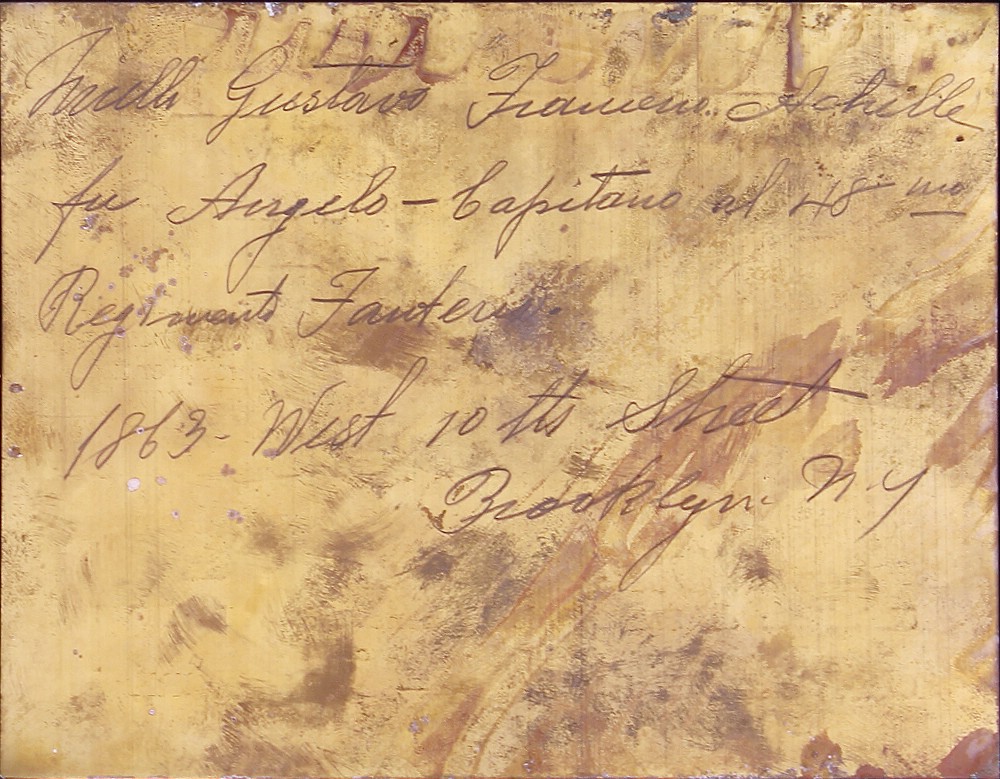 Gustavo Francesco Achille
fu Angelo - Capitano al 48 mo
Regimento Fanteria.
1863 - West 10 th Street
Brooklyn N.Y